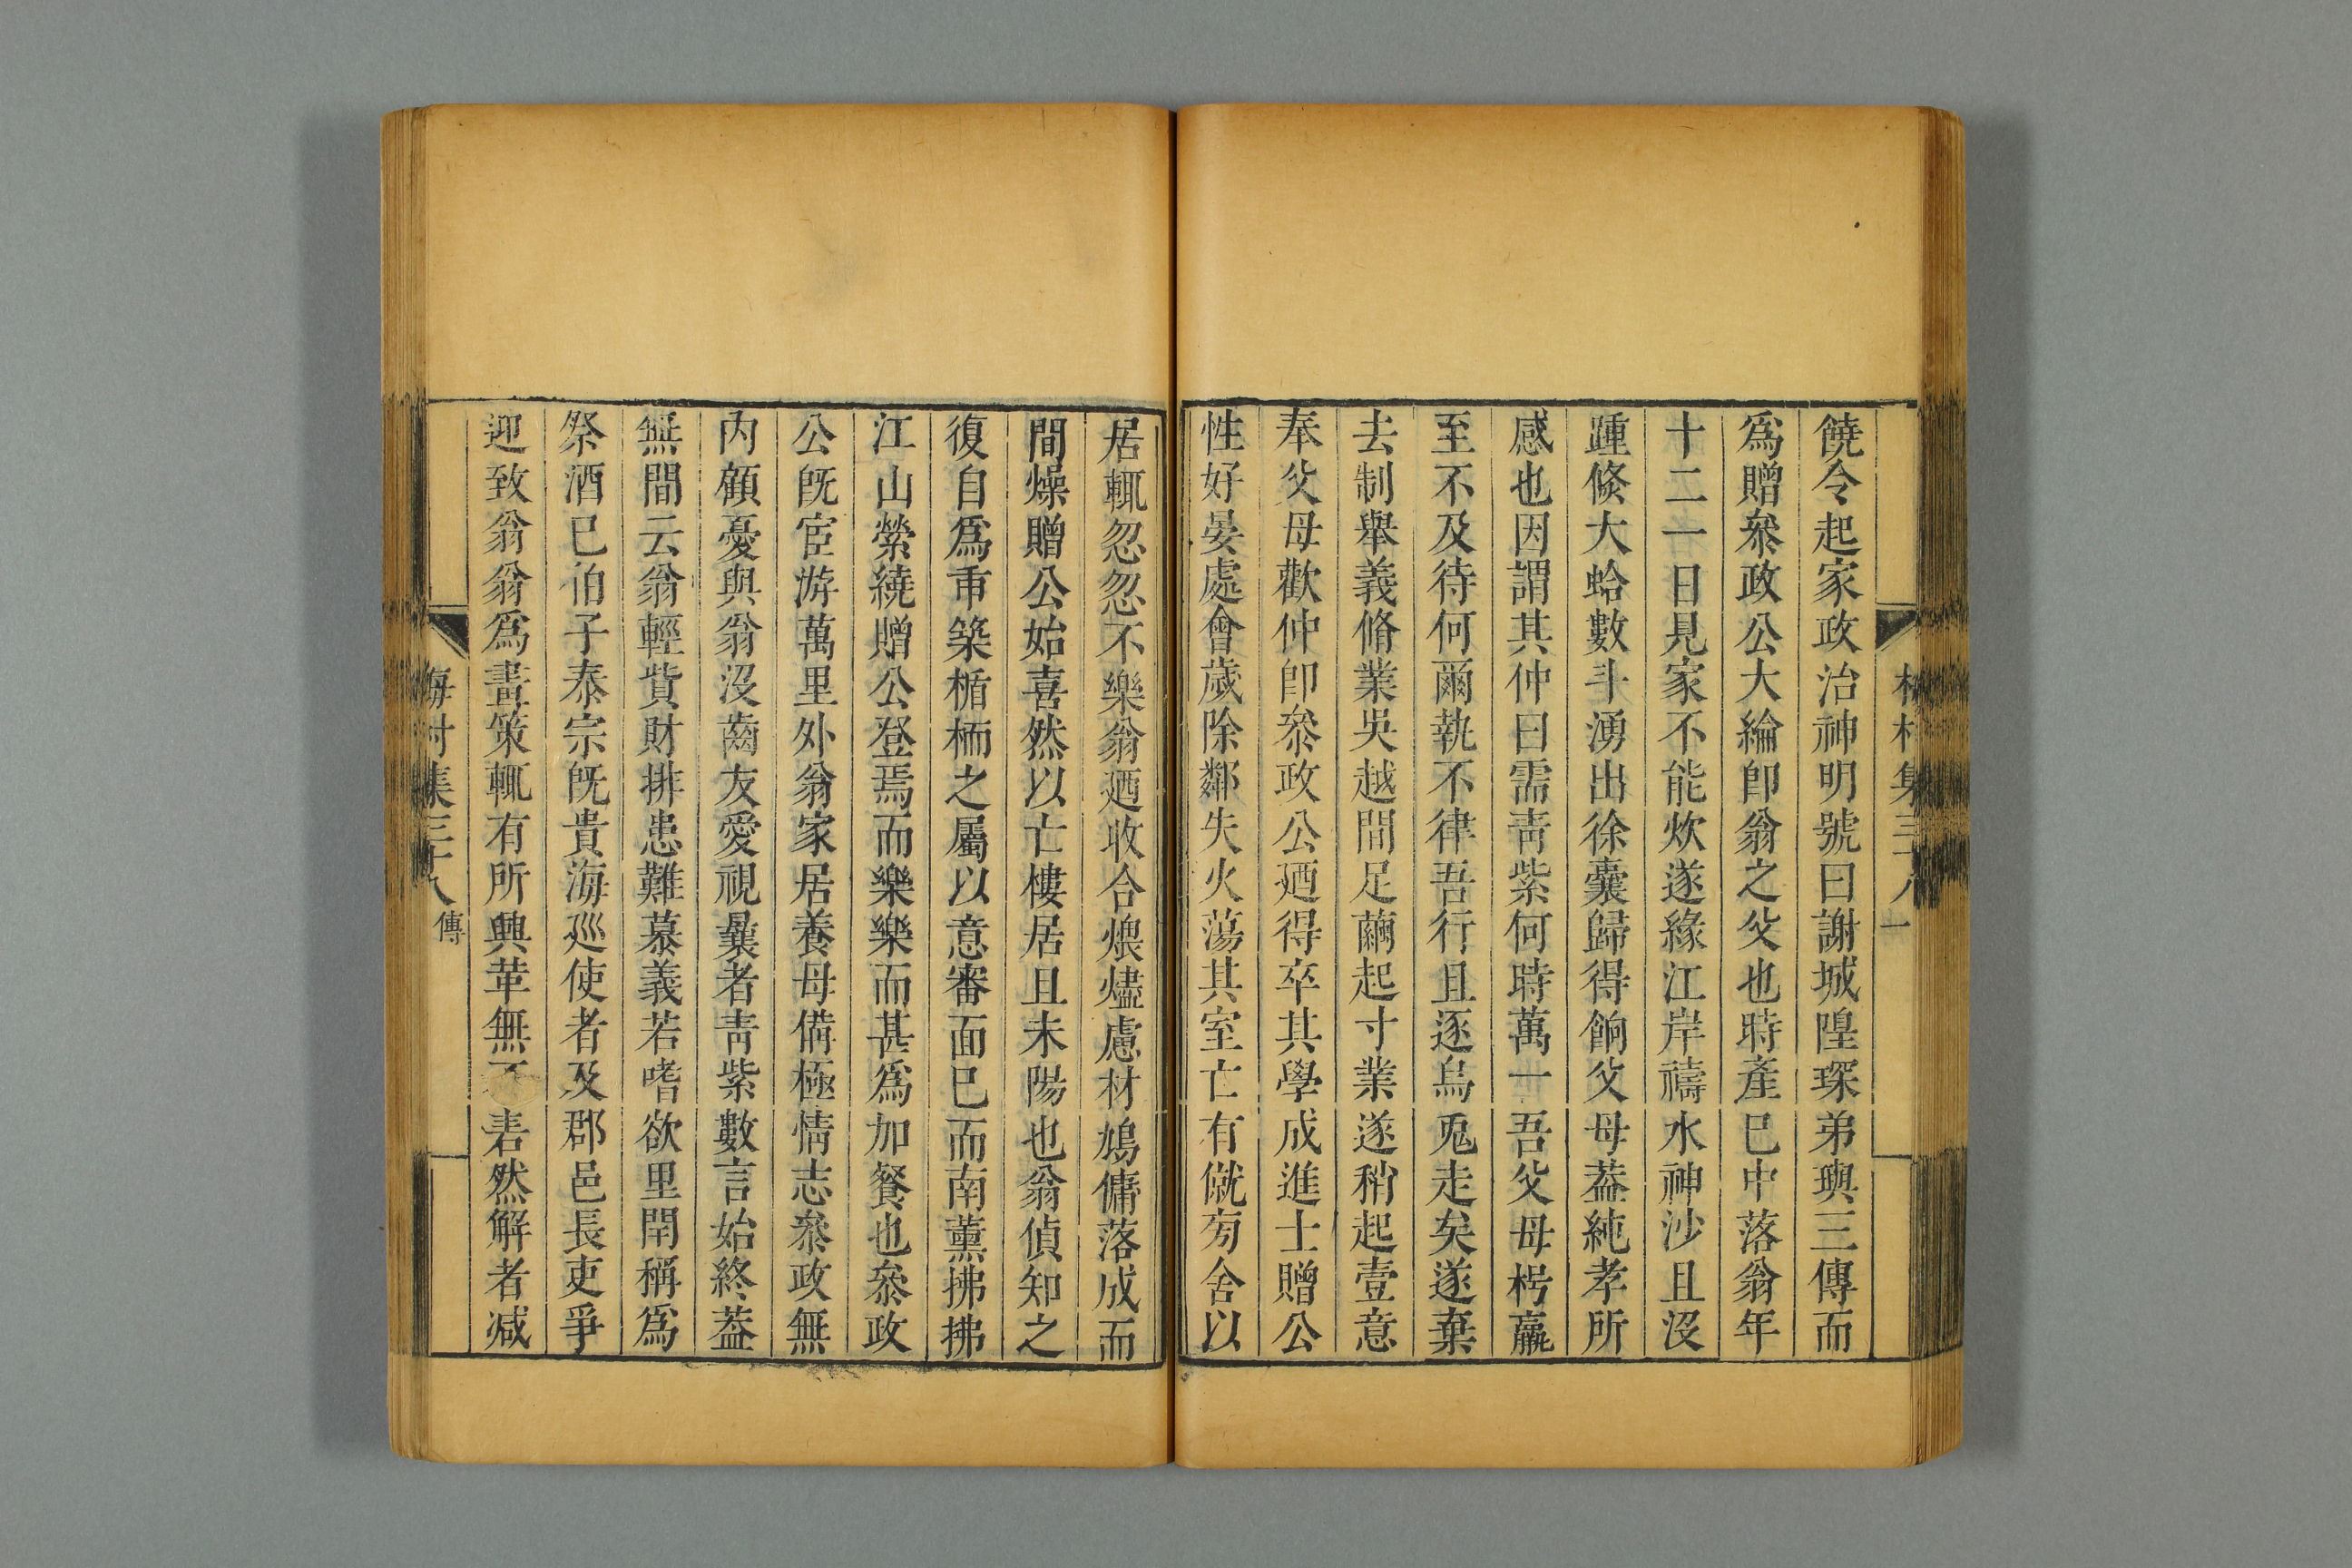 饒令起家政治神明號曰謝城隍琛弟璵三傳而
爲贈叅政公大綸卽翁之父也時產已中落翁年
十二一日見家不能炊遂緣江岸禱水神沙且沒
踵倐大蛤數斗湧出徐囊歸得餉父母葢純孝所
感也因謂其仲曰需靑紫何時萬一吾父母枵羸
至不及待何爾執不律吾行且逐烏兎走矣遂棄
去制舉義脩業吳越間足繭起寸業遂稍起壹意
奉父母歡仲卽叅政公廼得卒其學成進士贈公
性好晏處會歲除鄰失火蕩其室亡有僦旁舍以
居輒忽忽不樂翁廼收合煨燼慮材鳩傭落成而
間燥贈公始喜然以亡樓居且未陽也翁偵知之
復自爲重築楯栭之屬以意審面已而南薰拂拂
江山縈繞贈公登焉而樂樂而甚爲加餐也叅政
公旣宦游萬里外翁家居養母備極情志叅政無
內顧憂與翁沒齒友愛視曩者靑紫數言始終葢
無間云翁輕貲財排患難慕義若嗜欲里閈稱爲
祭酒已伯子泰宗旣貴海巡使者及郡邑長吏爭
迎致翁翁爲畫策輒有所興革無不砉然解者減
集三十八 傳